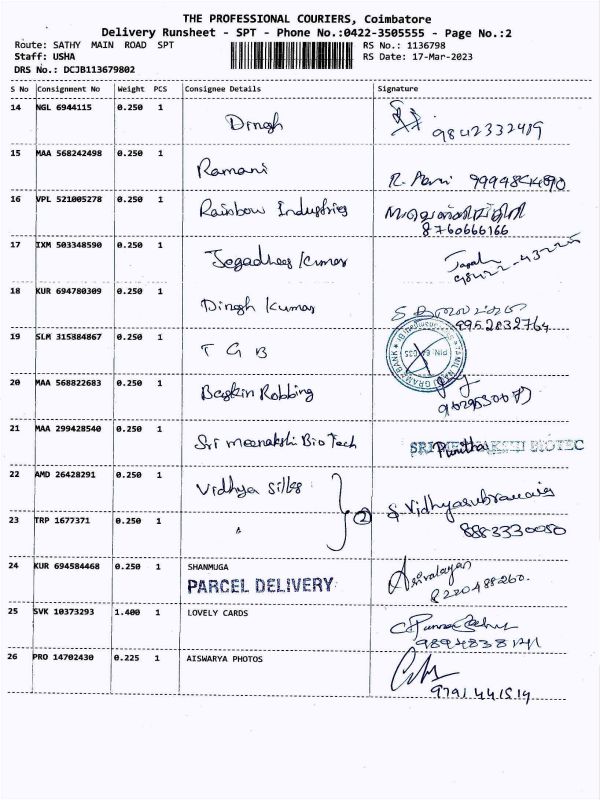 THE PROFESSIONAL COURIERS, Coimbatore
Delivery Runsheet - SPT - Phone No.:0422-3505555 - Page No.:2
Route: SATHY MAIN ROAD SPT RS No.: 1136798
Staff: USHA RS Date: 17-Mar-2023
DRS No.: DCJB113679802
S No Consignment No Weight PCS Consignee Details Signature
14 NGL 6944115 0.250 1 Dinesh 9842332419
15 MAA 568242498 0.250 1 Ramani
16 VPL 521005278 0.250 1 Rainbow Industries
8760666166
17 IXM 503348590 0.250 1 Jegadhees Kumar
98422-43225
18 KUR 694780309 0.250 1 Dinesh Kumar
9952832764
19 SLM 315384867 0.250 1 T G B TAMIL NADU GRAMA BANK
20 MAA 568822683 0.250 1 Baskin Robbing
21 MAA 299428540 0.250 1 Sri meenakshi Bio Tech Punitha
22 AMD 26428291 0.250 1 Vidhya silks S. Vidhyasubramani
2
23 TRP 1677371 0.250 1 " 8883330080
24 KUR 694584468 0.250 1 SHANMUGA
PARCEL DELIVERY 8220488260.
25 SVK 10373293 1.400 1 LOVELY CARDS
26 PRO 14702430 0.225 1 AISWARYA PHOTOS
9791441519